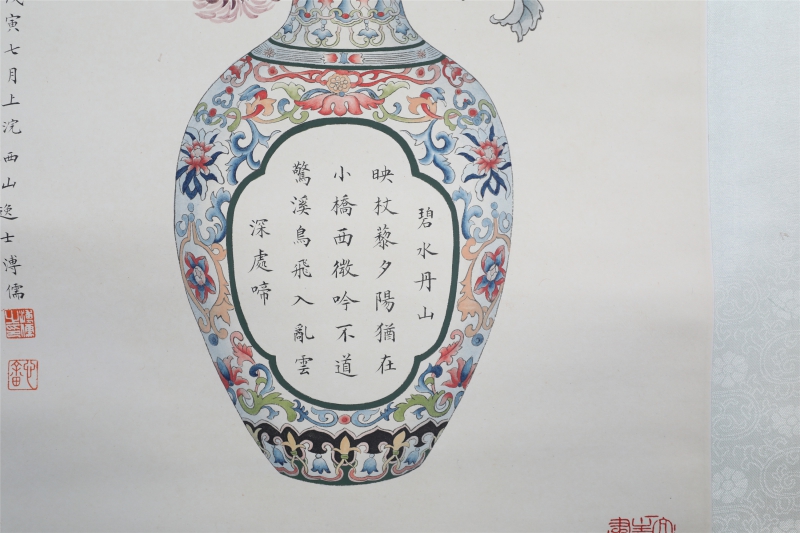 碧水丹山
映杖藜夕陽猶在
小橋西微吟不道
驚溪鳥飛入亂雲
深處啼
寅七月上浣西山逸士溥儒